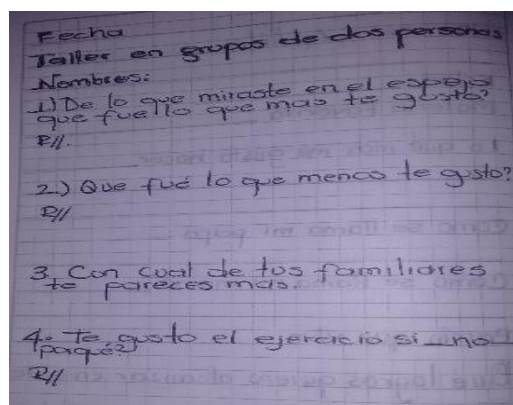 Fecha
Taller en grupos de dos personas
Nombres:
1) De lo que miraste en el espejo
que fue lo que mas te gusto?
R//.
2.) Que fué lo que menos te gusto?
R//
3. Con cual de tus familiares
te pareces mas.
4. Te gusto el ejercicio si_no_
porque?
R//